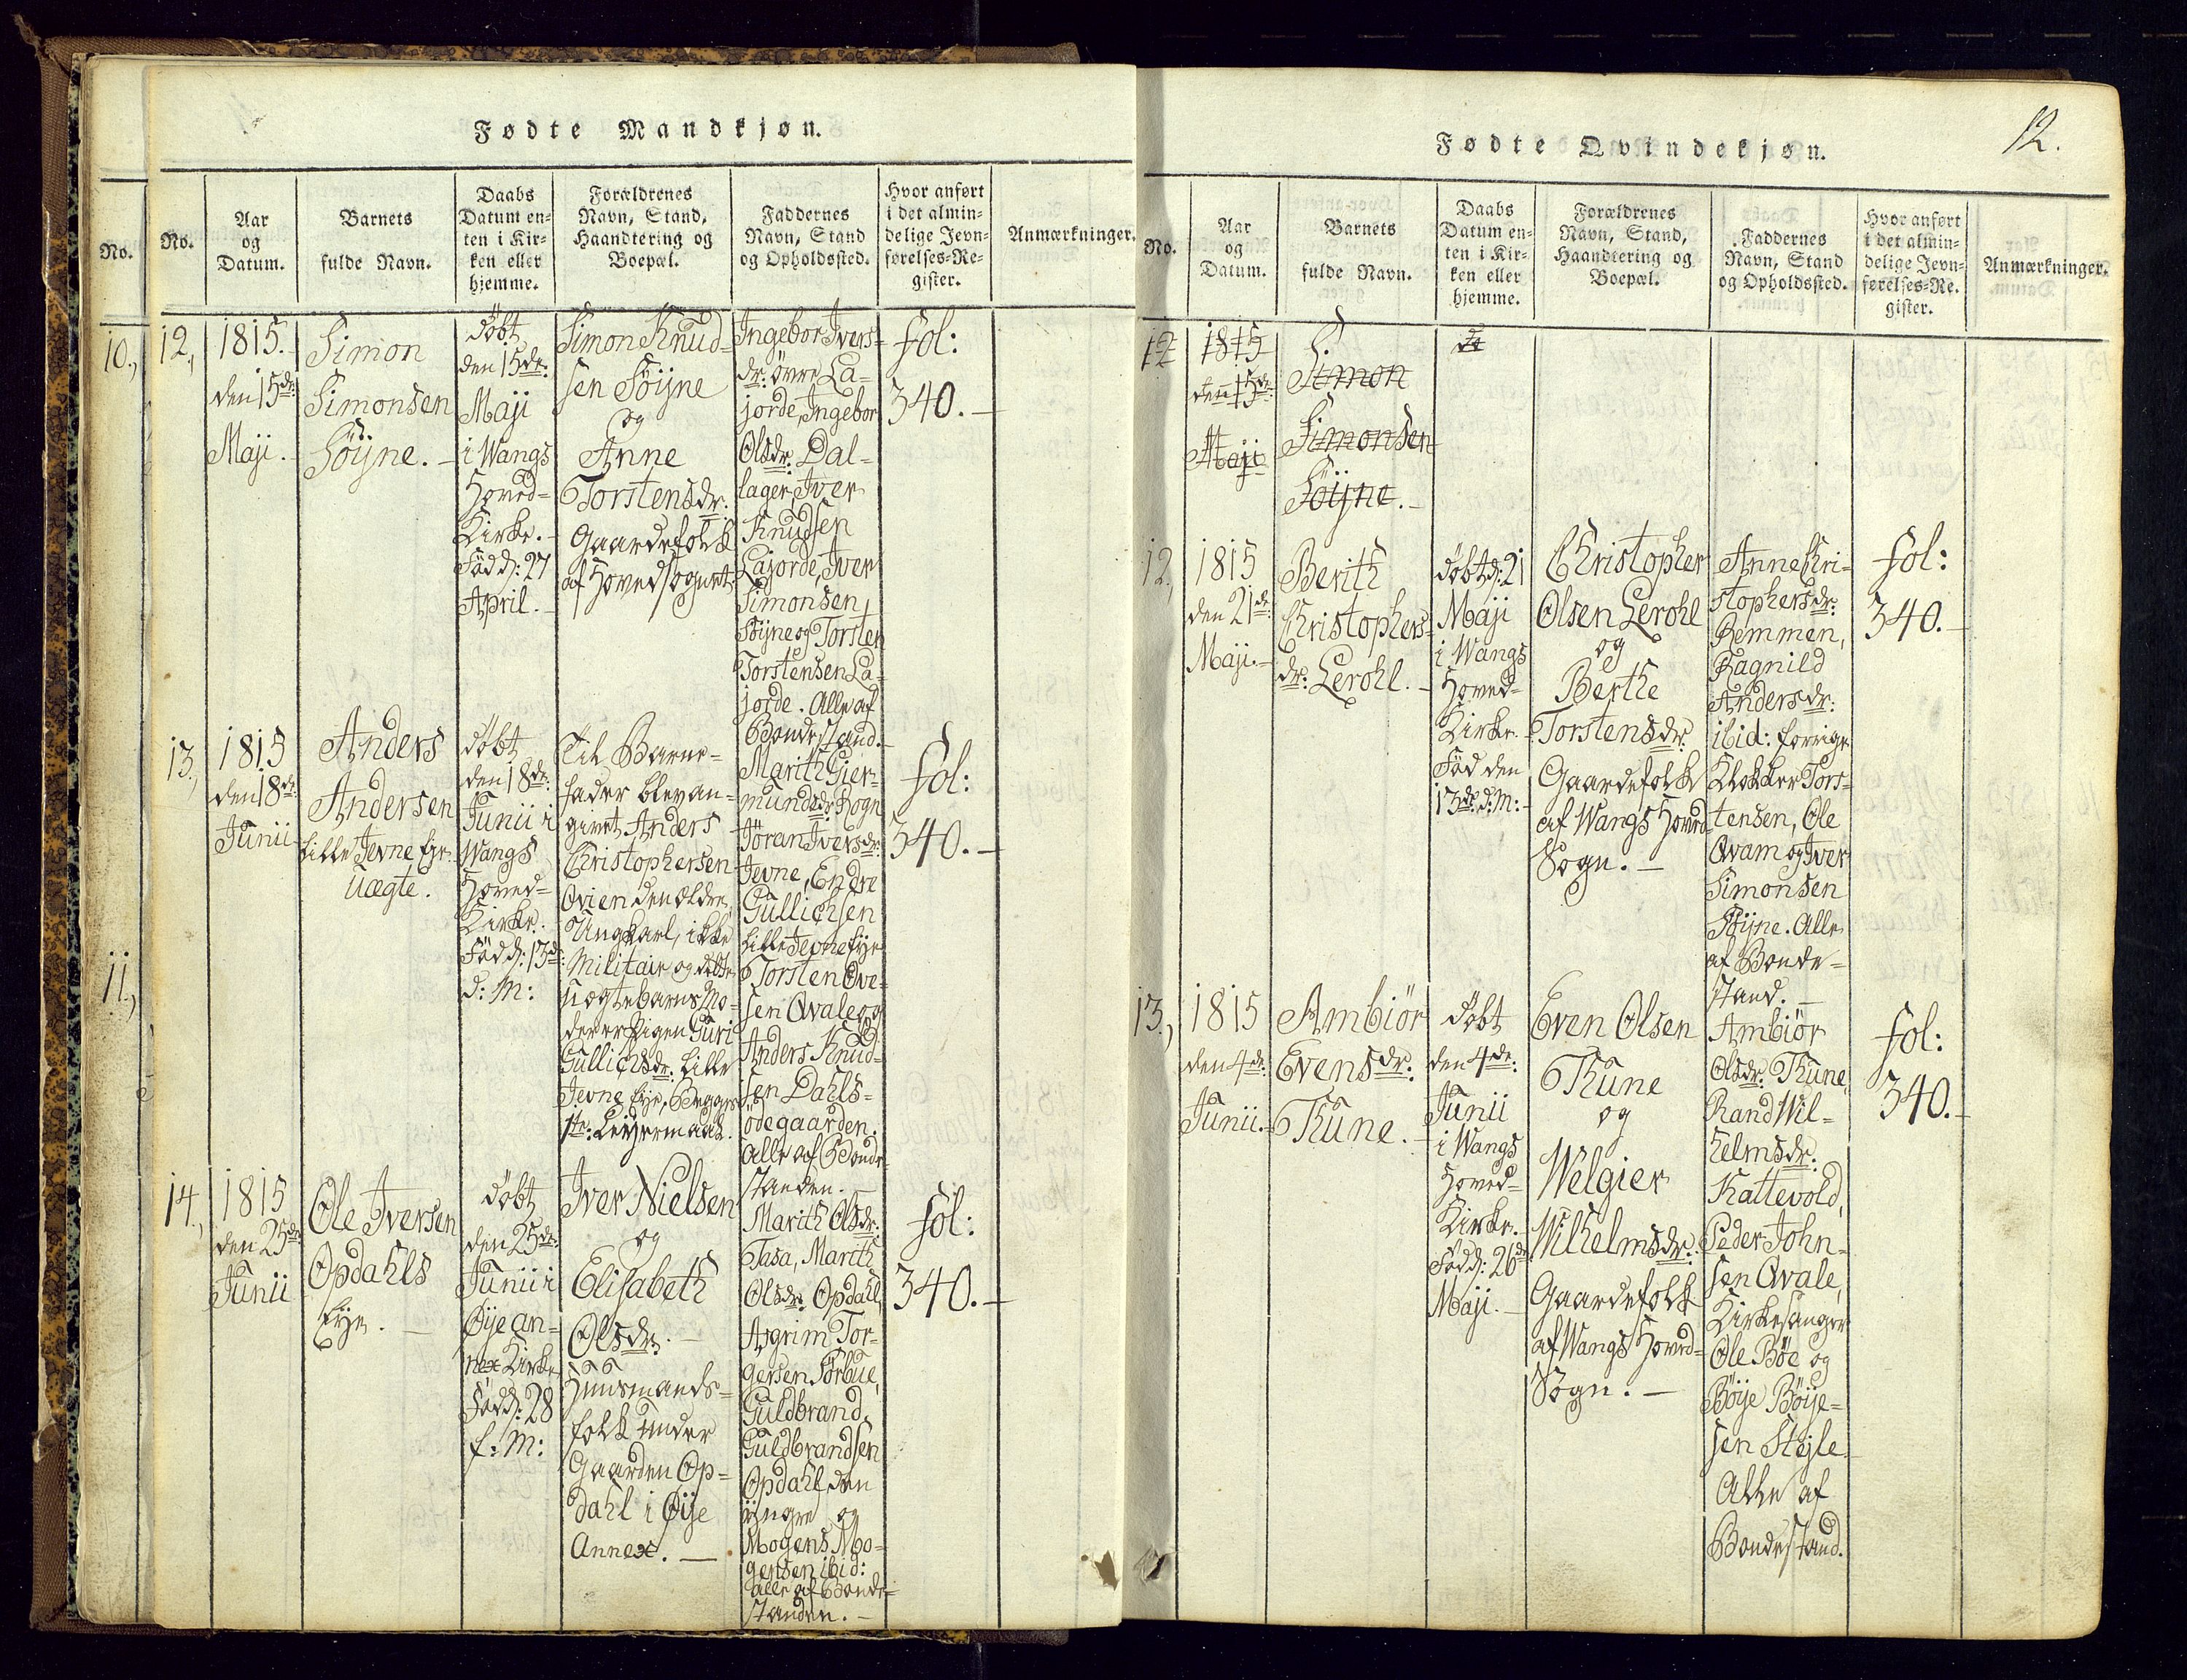 Fødte Mandkjøn.
No.
No.
Aar
og
Datum.
Barnets
fulde Navn.
Daabs
Datum en-
ten i Kir-
ken eller
hjemme.
Forældrenes
Navn, Stand,
Haandtering og
Boepæl.
Faddernes
Navn, Stand
og Opholdssted.
Hvor anført
i det almin-
delige Jevn-
førelses-Re-
gister.
Anmærkninger.
10.,
11.,
12,
1815.
den 15de:
Maji.
Simon
Simonsen
Söyne.
döbt
den 15de:
Maji
i Wangs
Hoved=
Kirke.
Född: 27
April.
Simon Knud=
sen Söyne
og
Anne
Torstensdr:
Gaardefolk
af Hovedsognet
Ingebor Ivers=
dr: övre La=
jorde, Ingebor
Olsdr: Dal=
lager, Iver
Knudsen
Lajorde, Iver
Simonsen
Söyne og Torsten
Torstensen La=
jorde. Alle af
Bondestand.
fol:
340.
13.,
1815
den 18de:
Junii
Anders
Andersen
Lille Jevne Eje.
Uægte.
döbt
den 18de:
Junii i
Wangs
Hoved=
Kirke.
Född: 13de:
d: M:
Til Barne=
fader blev an=
givet Anders
Christophersen
Qvien den ældre,
Ungkarl, ikke
Militair og dette
uægtebarns Mo=
der er Pigen Guri
Gullichsdr: Lille
Jevne Eje, Begges
1te: Leyermaal.
Marith Gier=
mundsdr: Rogn
Jöran Iversdr:
Jevne, Endre
Gullichsen
Lille Jevne Eje
Torsten Ove=
sen Qvale og
Anders Knud=
sen Dahls=
ödegaarden.
Alle af Bonde=
standen.
fol:
340.
14.,
1815
den 25de:
Junii
Ole Iversen
Opdahls
Eje.
döbt
den 25de:
Junii i
Øye An=
nex Kirke
Född: 28
f: M:
Iver Nielsen
og
Elisabeth
Olsdr.
Huusmands=
folk under
Gaarden Op=
dahl i Øije
Annex.
Marith Olsdr:
Tasa, Marith
Olsdr: Opdahl,
Asgrim Tor=
gersen Sørbue,
Guldbrand
Guldbrandsen
Opdahl den
yngre og
Mogens Mo=
gensen ibid:
alle af Bonde=
standen.
fol:
340.
12.
Fødte Qvindekjøn.
No.
Aar
og
Datum.
Barnets
fulde Navn.
Daabs
Datum en-
ten i Kir-
ken eller
hjemme.
Forældrenes
Navn, Stand,
Haandtering og
Boepæl.
Faddernes
Navn, Stand
og Opholdssted.
Hvor anført
i det almin-
delige Jevn-
førelses-Re-
gister.
Anmærkninger.
12
1815
den 15de:
Maji
Simon
Simonsen
Söyne.
12,
1815
den 21de:
Maji.
Berith
Christophers=
dr: Lerohl.
döbt d: 21
Maji
i Wangs
Hoved=
Kirke.
Föd den
13de d: M:
Christopher
Olsen Lerohl
og
Berthe
Torstensdr:
Gaardefolk
af Wangs Hoved
Sogn.
Anne Chri=
stophersdr:
Remmen,
Ragnild
Andersdr:
ibid: forrige
Klokker Tors=
tensen, Ole
Qvam og Iver
Simonsen
Söyne. Alle
af Bonde=
stand.
fol:
340.
13.,
1815
den 4de:
Junii.
Ambiör
Evensdr:
Thune.
döbt
den 4de:
Junii
i Wangs
Hoved=
Kirke.
Född: 26de
Maji.
Even Olsen
Thune
og
Welgier
Wilhelmsdr:
Gaardefolk
af Wangs Hoved=
Sogn.
Ambiör
Olsdr: Thune,
Rand Wil=
helmsdr:
Kattevold,
Peder John=
sen Qvale,
Kirkesanger
Ole Böe og
Böye Böye=
sen Stejle
Alle af
Bondestand.
fol:
340.